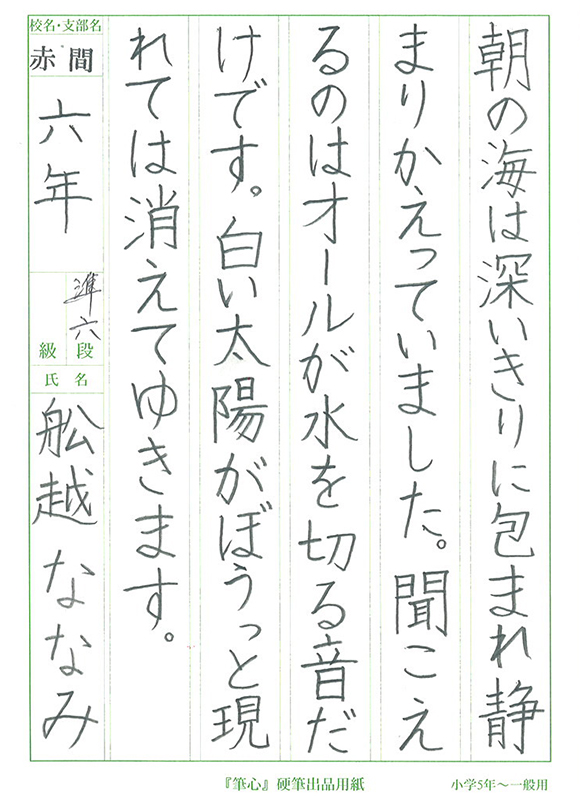 朝の海は深いきりに包まれ静
まりかえっていました。聞こえ
るのはオールが水を切る音だ
けです。白い太陽がぼうっと現
れては消えてゆきます。
校名・支部名
赤間
六年
準六
級段
氏名
舩越ななみ
『筆心』硬筆出品用紙
小学5年～一般用